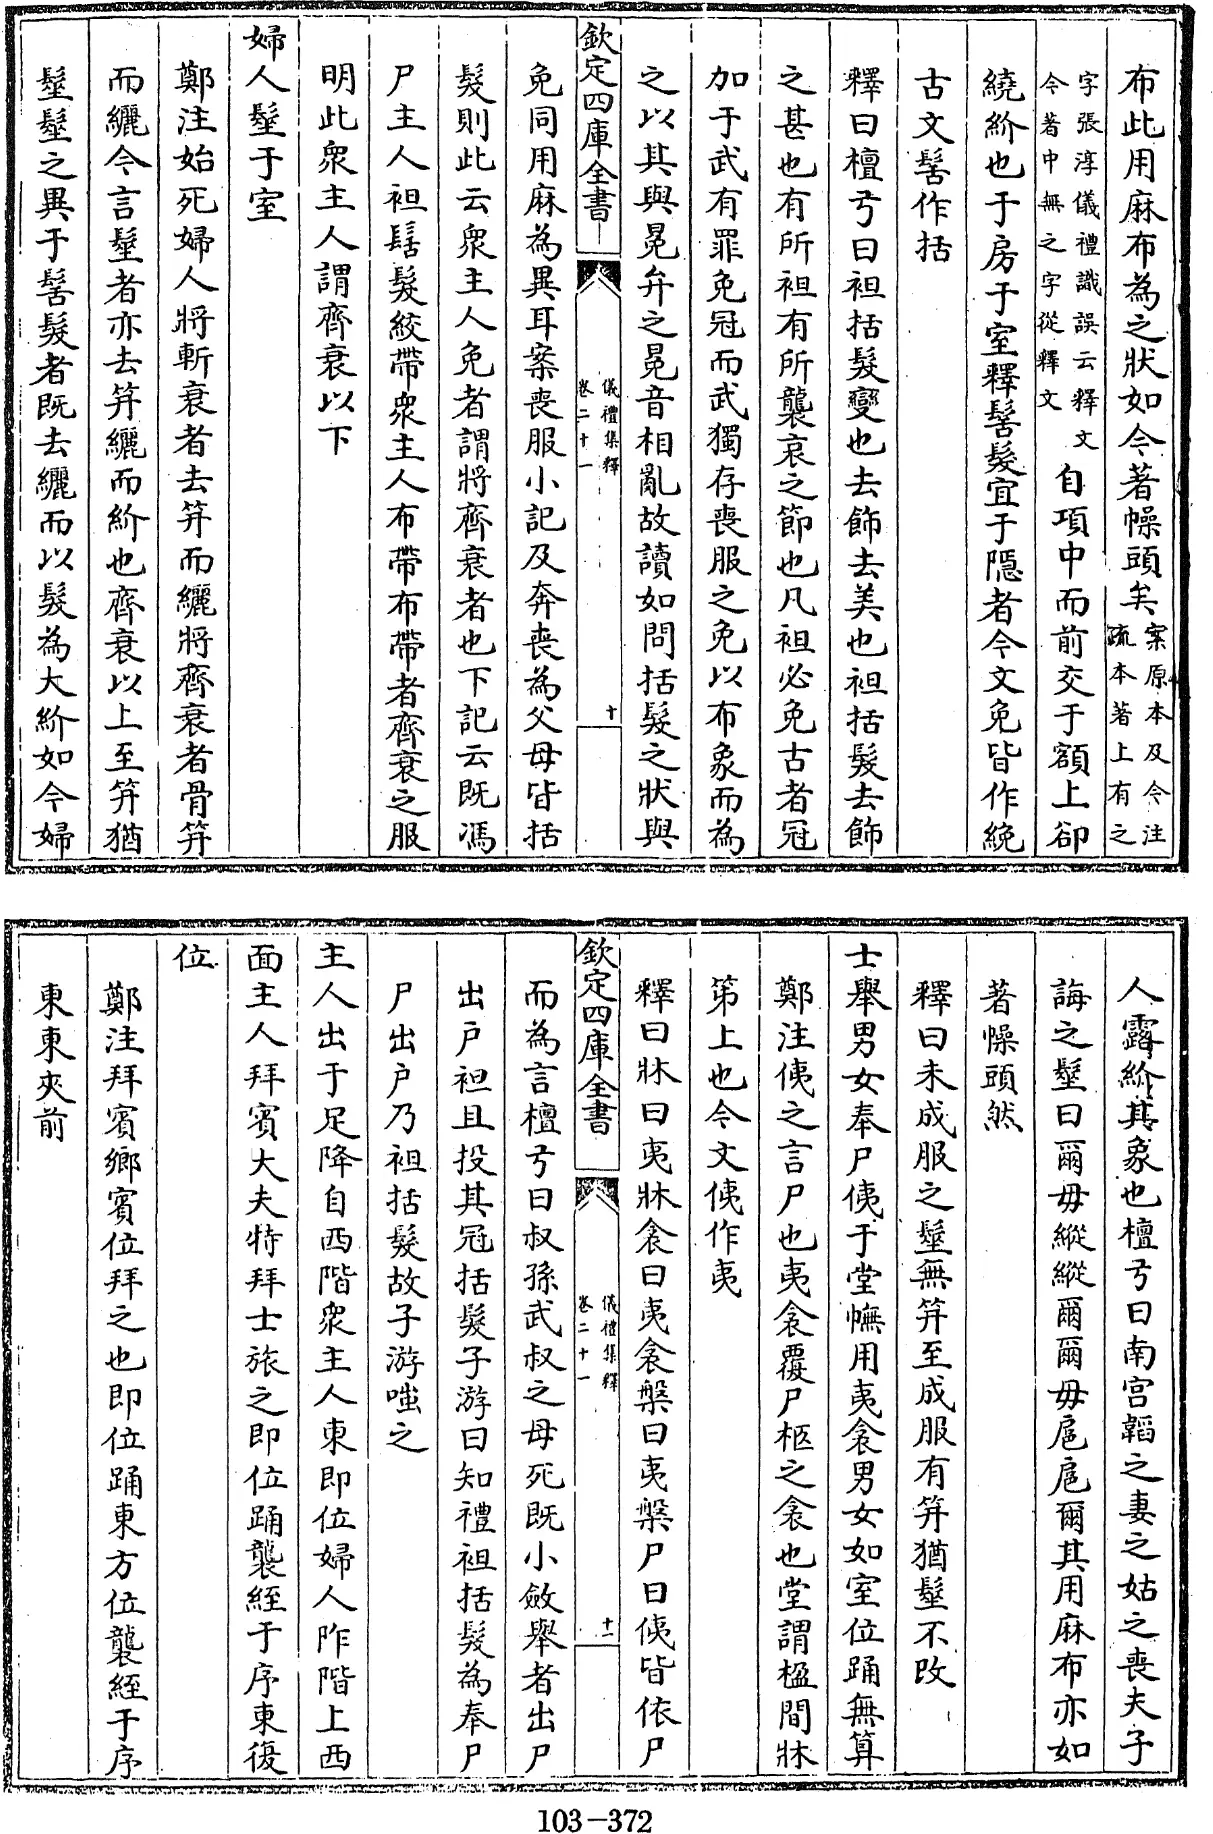 布此用麻布為之狀如今著幓頭矣案原本及今注疏本著上有之
字張淳儀禮識誤云釋文今著中無之字從釋文自項中而前交于額上卻
繞紒也于房于室釋髺髮宜于隱者今文免皆作絻
古文髺作括
釋曰檀弓曰袒括髮變也去飾去美也袒括髮去飾
之甚也有所袒有所襲哀之節也凡袒必免古者冠
加于武有罪免冠而武獨存喪服之免以布象而為
之以其與冕弁之冕音相亂故讀如問括髮之狀與
欽定四庫全書
儀禮集釋
卷二十一
十
免同用麻為異耳案喪服小記及奔喪為父母皆括
髮則此云衆主人免者謂將齊衰者也下記云既馮
尸主人袒髺髮絞帶衆主人布帶布帶者齊衰之服
明此衆主人謂齊衰以下
婦人髽于室
鄭注始死婦人將斬衰者去笄而纚將齊衰者骨笄
而纚今言髽者亦去笄纚而紒也齊衰以上至笄猶
髽髽之異于髺髮者既去纚而以髮為大紒如今婦
人露紒其象也檀弓曰南宫韜之妻之姑之喪夫子
誨之髽曰爾毋縱縱爾爾毋扈扈爾其用麻布亦如
著幓頭然
釋曰未成服之髽無笄至成服有笄猶髽不改
士舉男女奉尸侇于堂幠用夷衾男女如室位踊無算
鄭注侇之言尸也夷衾覆尸柩之衾也堂謂楹間牀
笫上也今文侇作夷
釋曰牀曰夷牀衾曰夷衾槃曰夷槃尸曰侇皆依尸
欽定四庫全書
儀禮集釋
卷二十一
十一
而為言檀弓曰叔孫武叔之母死既小斂舉者出尸
出户袒且投其冠括髮子游曰知禮袒括髮為奉尸
尸出户乃袒括髮故子游嗤之
主人出于足降自西階衆主人東即位婦人阼階上西
面主人拜賓大夫特拜士旅之即位踊襲絰于序東復
位
鄭注拜賓鄉賓位拜之也即位踊東方位襲絰于序
東東夾前
103-372